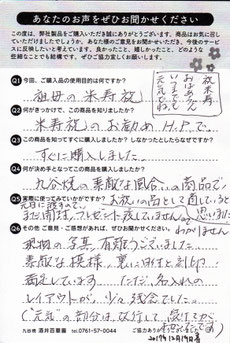 あなたのお声をぜひお聞かせください
この度は、弊社製品をご購入いただき誠にありがとうございます。商品はお気に召し
ていただけましたでしょうか。あなた様のご意見をお聞かせいただき、今後のサービ
スに反映したいと考えています。良かったこと、嬉しかったこと、どのような
些細なことでも結構です。ぜひご協力宜しくお願いします。
Q1 今回、ご購入品の使用目的は何ですか?
祖母の米寿祝
祝米寿
おばあちゃん
いつまでも
元気でね
Q2 何がきっかけで、この商品を知りましたか?
米寿祝のお勧め H.Pで
Q3 この商品を知ってすぐに購入しましたか? しなかったとしたらなぜですか?
すぐに購入しました。
Q4 何が決め手となってこの商品を購入しましたか?
九谷焼の素敵な図合いの商品で
Q5 実際に使っていかがですか?
まだ開封、プレゼント渡してません。
思います
わかりません
Q6 その他ご意見・ご感想があれば、ぜひお聞かせください
現物の写真、有難うございました。
素敵な模様、裏に明すと刻印
満足しています。ただ、名入れの
レイアウトが、少々残念でした。
("元気"の部分は、改行して
九谷焼 酒井百華園 Tel.0761-57-0044
ご協力ありがとう
2019年12月19日着